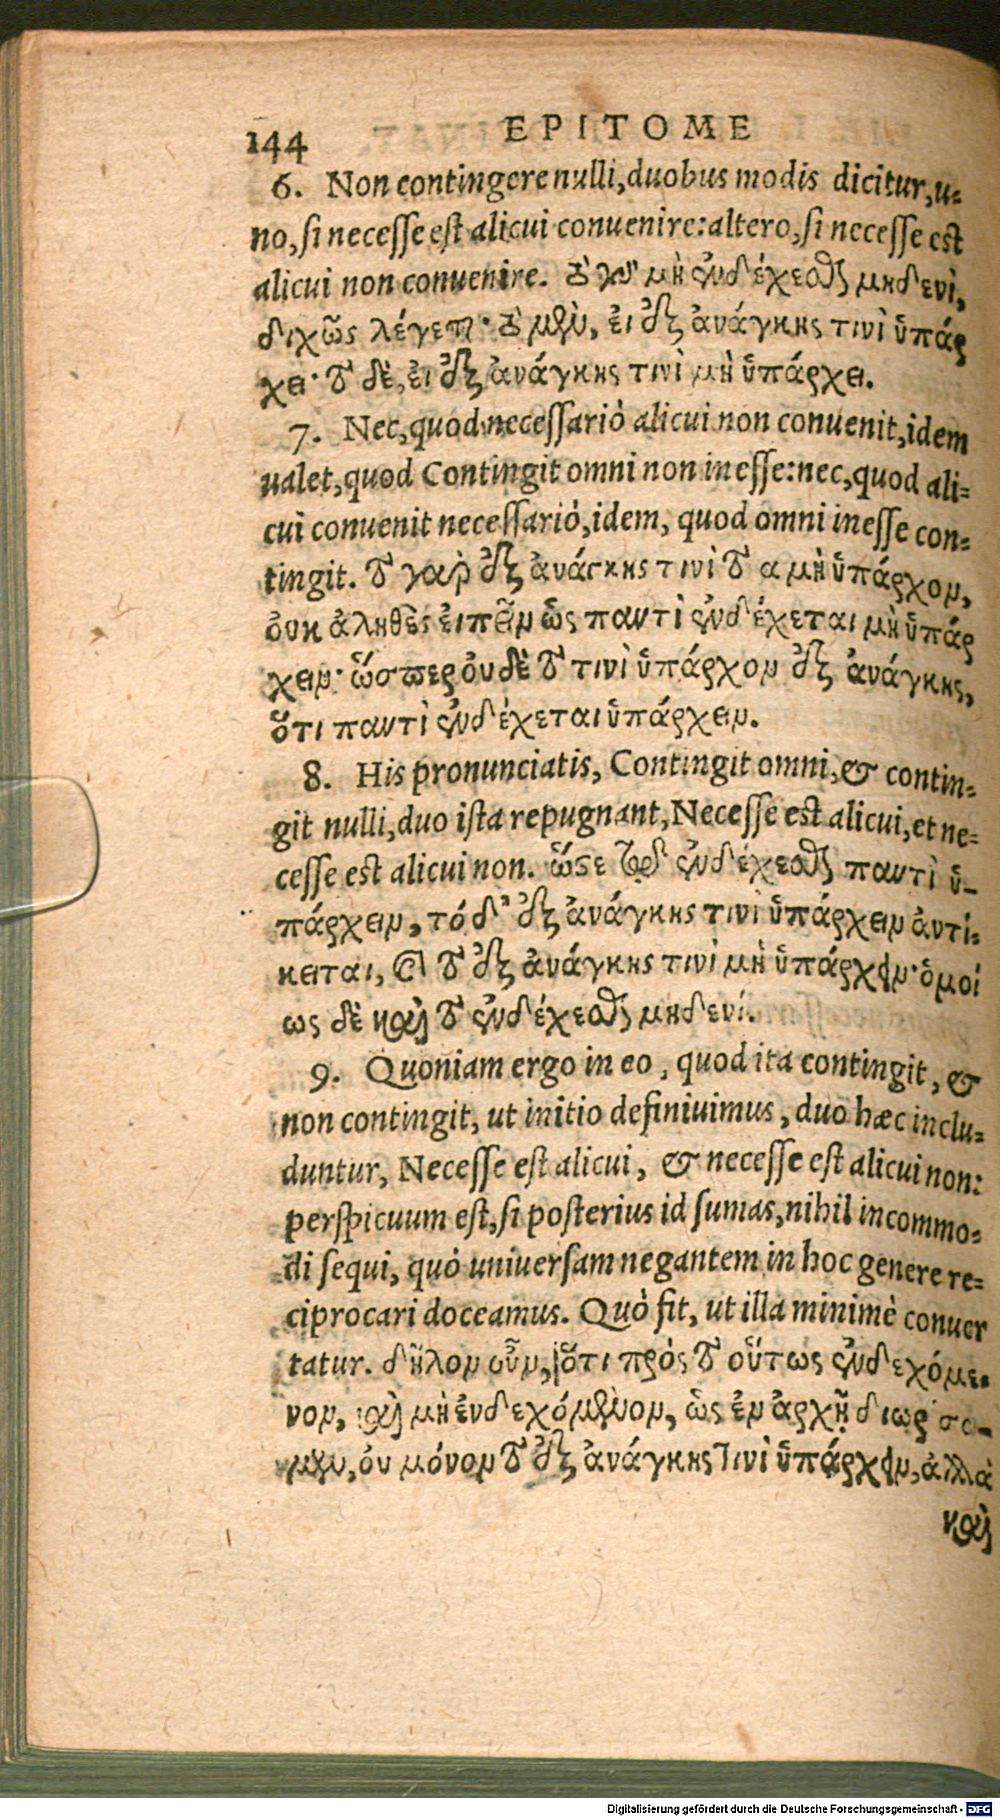 144 EPITOME
6. Non contingere nulli, duobus modis dicitur, u-
no, si necesse est alicui convenire: altero, si necesse est
alicui non convenire. τὸ γὰρ μὴ ἐνδέχεσθαι μηδενὶ,
διχῶς λέγεται· τὸ μὲν, εἰ ἐξ ἀνάγκης τινὶ ὑπάρ
χει· τὸ δὲ, εἰ ἐξ ἀνάγκης τινὶ μὴ ὑπάρχει.
7. Nec, quod necessariò alicui non convenit, idem
valet, quod Contingit omni non inesse: nec, quod ali-
cui convenit necessariò, idem, quod omni inesse con-
tingit. τὸ γὰρ ἐξ ἀνάγκης τινὶ τῷ α μὴ ὑπάρχον,
οὐκ ἀληθὲς εἰπεῖν ὡς παντὶ ἐνδέχεται μὴ ὑπάρ
χειν· ὥσπερ οὐδὲ τὸ τινὶ ὑπάρχον ἐξ ἀνάγκης,
ὅτι παντὶ ἐνδέχεται ὑπάρχειν.
8. His pronunciatis, Contingit omni, & contin-
git nulli, duo ista repugnant, Necesse est alicui, et ne-
cesse est alicui non. ὥστε τῷ ἐνδέχεσθαι παντὶ ὑ-
πάρχειν, τό δ' ἐξ ἀνάγκης τινὶ ὑπάρχειν ἀντί-
κειται, καὶ τὸ ἐξ ἀνάγκης τινὶ μὴ ὑπάρχειν· ὁμοί
ως δὲ καὶ τῷ ἐνδέχεσθαι μηδενί.
9. Quoniam ergo in eo, quod ita contingit, &
non contingit, ut initio definivimus, duo hæc inclu-
duntur, Necesse est alicui, & necesse est alicui non:
perspicuum est, si posterius id sumas, nihil incommo-
di sequi, quò universam negantem in hoc genere re-
ciprocari doceamus. Quò fit, ut illa minimè conver
tatur. δῆλον οὖν, ὅτι πρὸς τὸ οὕτως ἐνδεχόμε-
νον, καὶ μὴ ἐνδεχόμενον, ὡς ἐν ἀρχῇ διωρίσα-
μεν, οὐ μόνον τὸ ἐξ ἀνάγκης τινὶ ὑπάρχειν, ἀλλὰ
καὶ
Digitalisierung gefördert durch die Deutsche Forschungsgemeinschaft - DFG